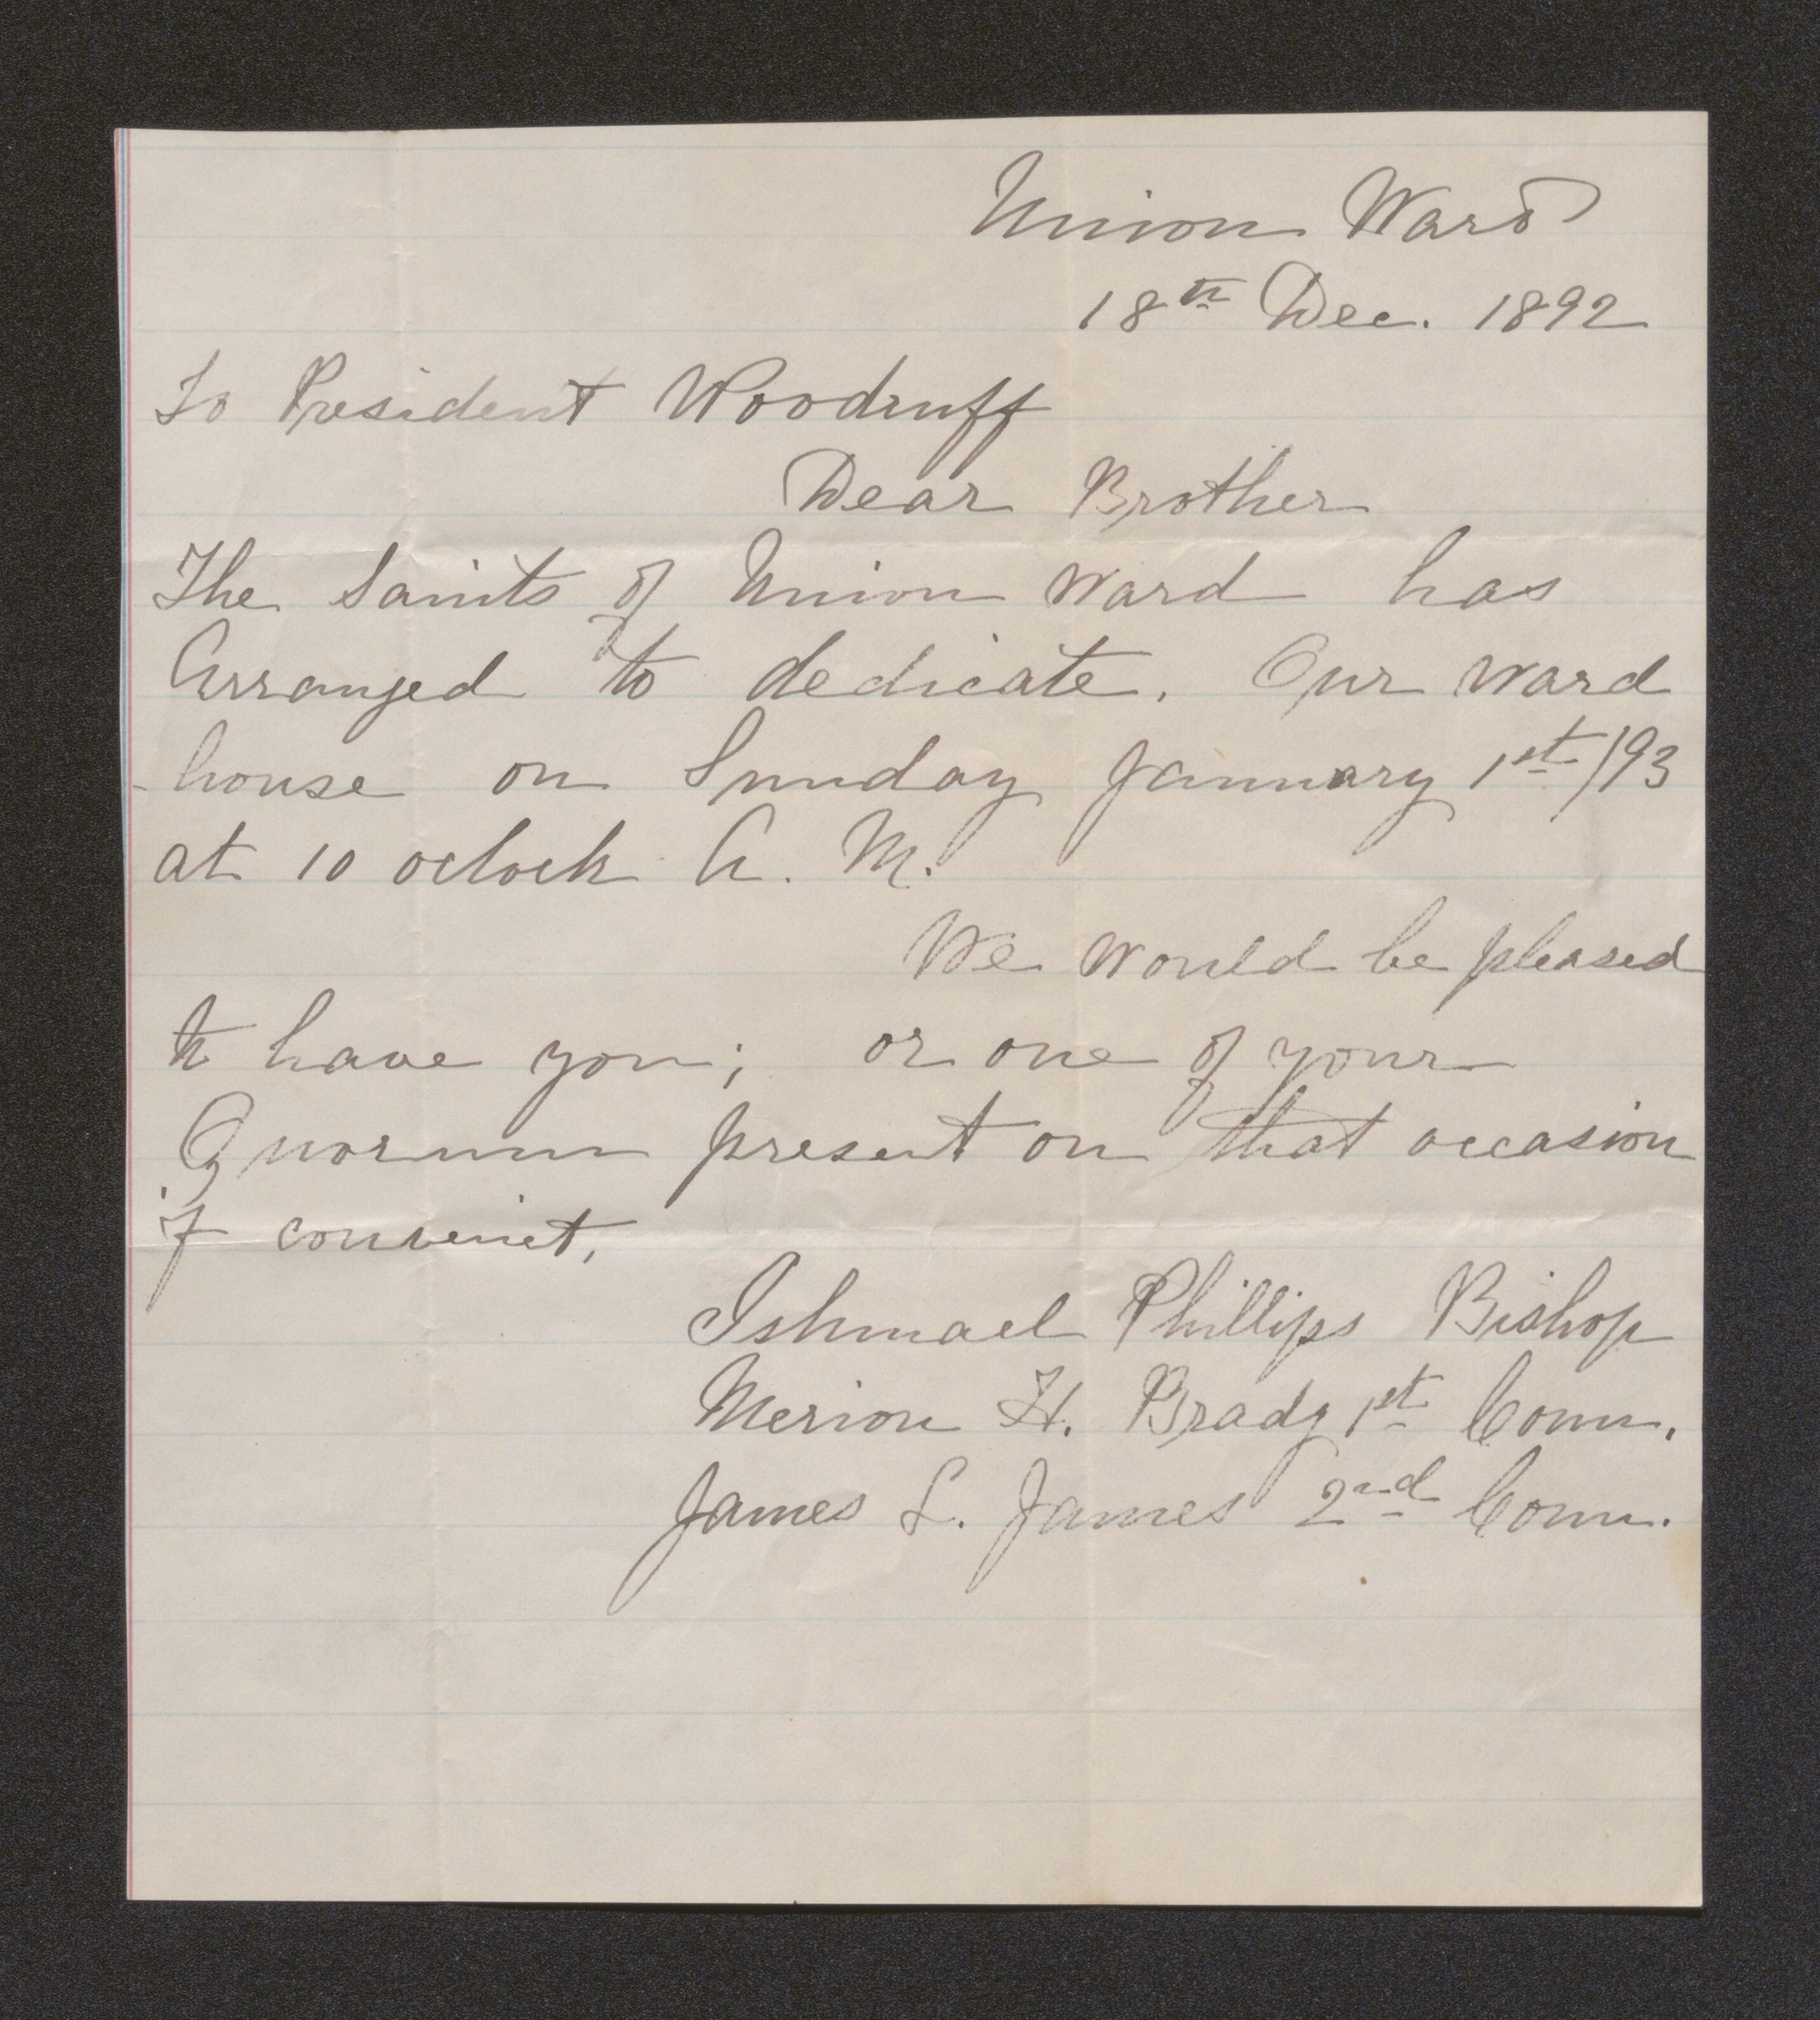 Union Ward
18th Dec. 1892
To President Woodruff
Dear Brother
The Saints of Union Ward has
Arranged to dedicate. Our ward
-house on Sunday January 1st /93
at 10 oclock A. M.
We would be pleased
to have you; or one of your
Quorum present on that occasion
if convenit,
Ishmael Phillips Bishop
Merion H. Brady 1st Coun.
James L. James 2nd Coun.